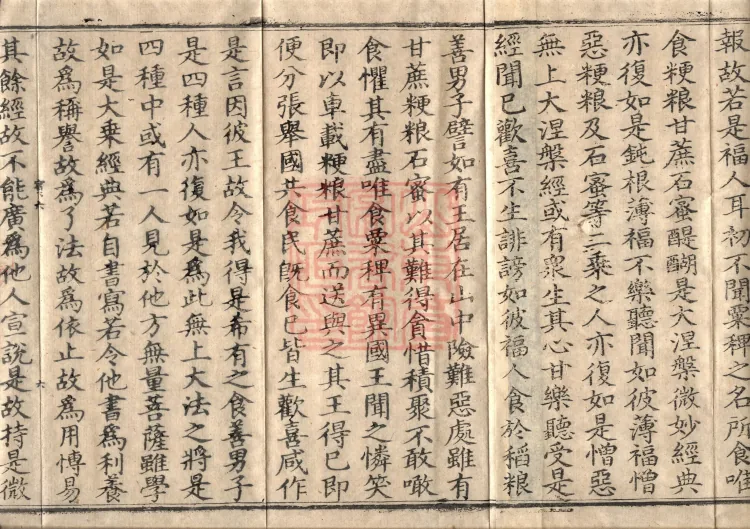 報故若是福人耳初不聞粟稗之名所食唯
食粳粮甘蔗石蜜醍醐是大涅槃微妙經典
亦復如是鈍根薄福不樂聽聞如彼薄福憎
惡粳粮及石蜜等二乘之人亦復如是憎惡
無上大涅槃經或有衆生其心甘樂聽受是
經聞已歡喜不生誹謗如彼福人食於稻粮
善男子譬如有王居在山中險難惡處雖有
甘蔗粳粮石蜜以其難得貪惜積聚不敢噉
食懼其有盡唯食粟稗有異國王聞之憐笑
即以車載粳粮甘蔗而送與之其王得已即
便分張舉國共食民旣食已皆生歡喜咸作
是言因彼王故令我得是希有之食善男子
是四種人亦復如是爲此無上大法之將是
四種中或有一人見於他方無量菩薩雖學
如是大乗經典若自書寫若令他書爲利養
故爲稱譽故爲了法故爲依止故爲用愽易
其餘經故不能廣爲他人宣說是故持是微